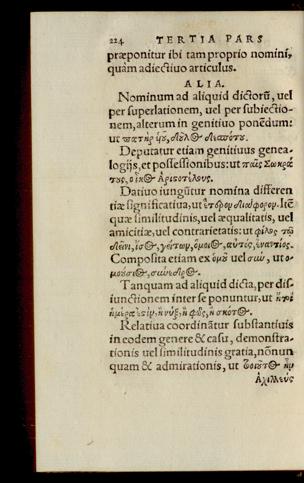 224 TERTIA PARS
præponitur ibi tam proprio nomini,
quàm adiectiuo articulus.
ALIA.
Nominum ad aliquid dictorũ, uel
per superlationem, uel per subiectio-
nem, alterum in genitiuo ponẽdum:
ut πατὴρ
Deputatur etiam genitiuus genea-
logijs, et possessionibus: ut παῖς Σωκρά
τους, ὁ οἶκος Ἀριστοτέλους.
Datiuo iungũtur nomina differen
tiæ significatiua, ut ἕτερον διάφορον. Itẽ
quæ similitudinis, uel æqualitatis, uel
amicitiæ, uel contrarietatis: ut φίλος τῷ
δεῖνι, ἴσος, γείτων, ὅμοιος, αὐτὸς, ἐναντίος.
Composita etiam ex ὁμοῦ uel σὺν, ut ὁ-
μούσιος,
Tanquam ad aliquid dicta, per dis
iunctionem inter se ponuntur, ut ἤτοι
ἡμέρα ἐστὶν, ἢ νὺξ, ἢ φῶς, ἢ σκότος.
Relatiua coordinãtur substantiuis
in eodem genere & casu, demonstra-
tionis uel similitudinis gratia, nõnun
quam & admirationis, ut ἦν
Ἀχιλλεὺς